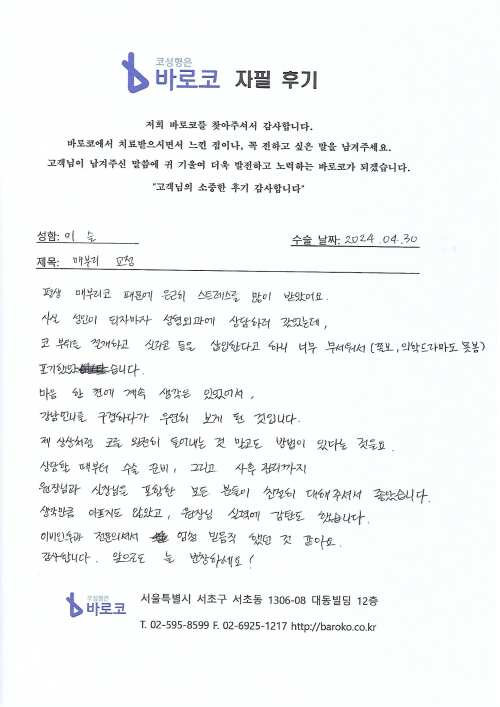 코성형은
바로코 자필 후기
저희 바로코를 찾아주셔서 감사합니다.
바로코에서 치료받으시면서 느낀 점이나, 꼭 전하고 싶은 말을 남겨주세요.
고객님이 남겨주신 말씀에 귀 기울여 더욱 발전하고 노력하는 바로코가 되겠습니다.
"고객님의 소중한 후기 감사합니다"
성함: 이 슬
수술 날짜: 2024.04.30
제목: 매부리 교정
평생 매부리코 때문에 은근히 스트레스를 많이 받았어요.
사실 성인이 되자마자 성형외과에 상담하러 갔었는데,
코 부위를 절개하고 실리콘 등을 삽입한다고 하니 너무 무서워서 (쫄보, 의학드라마도 못봄)
포기했었습니다.
마음 한 켠에 계속 생각은 있었어서,
강남언니를 구경하다가 우연히 보게 된 것입니다.
제 상상처럼 코를 완전히 들어내는 것 말고도 방법이 있다는 것을요.
상담한 때부터 수술 준비, 그리고 사후 관리까지
원장님과 실장님을 포함한 모든 분들이 친절히 대해주셔서 좋았습니다.
생각만큼 아프지도 않았고, 원장님 실력에 감탄도 했습니다.
이비인후과 전문의셔서 엄청 믿음직 했던 것 같아요.
감사합니다. 앞으로도 늘 번창하세요!
코성형은
바로코
서울특별시 서초구 서초동 1306-08 대동빌딩 12층
T. 02-595-8599 F. 02-6925-1217 http://baroko.co.kr